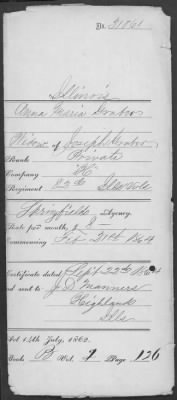 No. 31041
Illinois
Anna Maria
Widow of Joseph
Rank Private
Company "K"
Regiment 82d Ills Vols
Springfield Agency.
Rate per month, $ 8
Commencing Feb 21st 1864
Certificate dated Sept 22d 1864
and sent to J. D. Manners
Highland
Ills
Act 14th July, 1862.
Book B Vol. 1 Page 126